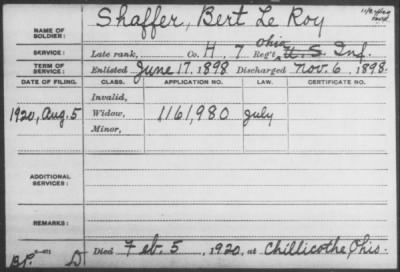 NAME OF SOLDIER: Shaffer, Bert Le Roy
SERVICE: Late rank, Co. H, 7 Reg't Ohio U.S. Inf.
TERM OF SERVICE: Enlisted June 17, 1898 Discharged Nov. 6, 1898.
DATE OF FILING. CLASS. APPLICATION NO. LAW. CERTIFICATE NO.
Invalid,
1920, Aug. 5 Widow, 1161,980 July
Minor,
ADDITIONAL SERVICES:
REMARKS:
Died Feb. 5, 1920, at Chillicothe, Ohio.